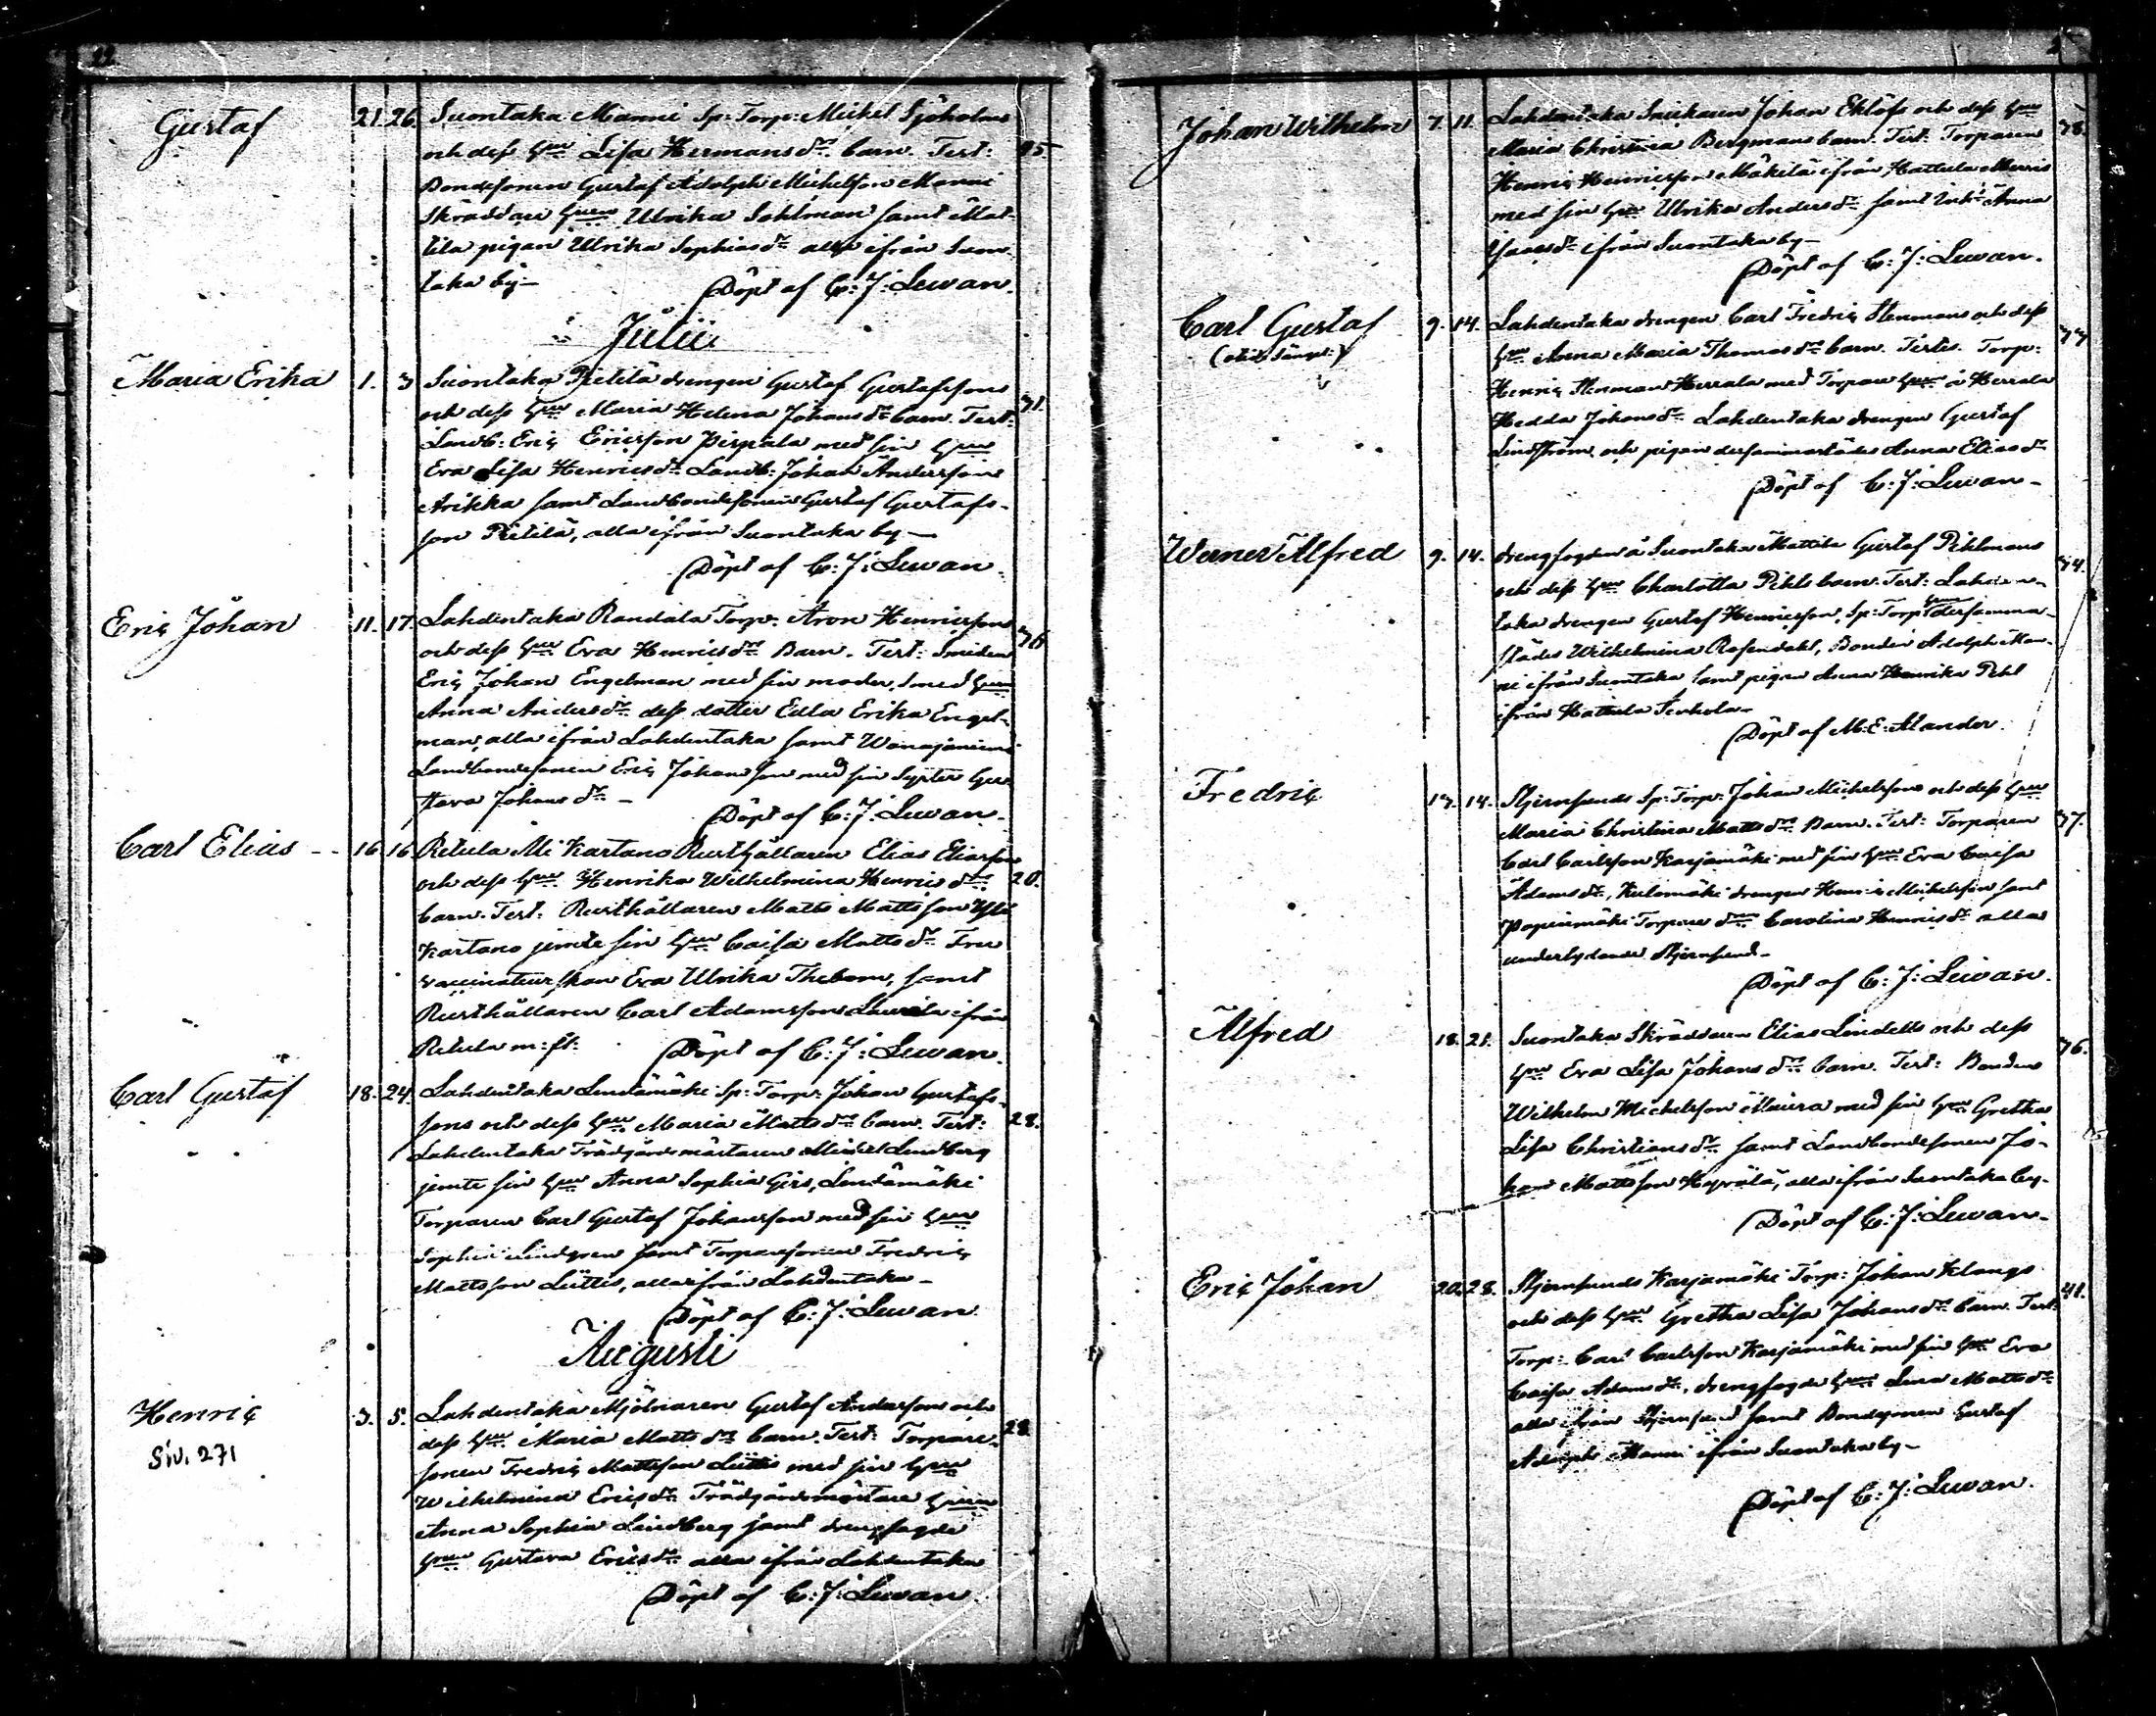 Gustaf 21. 26. Suontaka Manni Sp: Torp: Mickel Sjöholms
och dess hu Lisa Hermansdr barn. Test: 85
Bondesonen Gustaf Adolph Michelsson Manni
Skräddare hu Ulrika Sahlman samt Mat-
tila pigan Ulrika Sophiasdr alla ifrån Suon-
taka by—
Döpt af C: J: Lewan.
Julii
Maria Erika 1. 3 Suontaka Pietilä drengen Gustaf Gustafssons
och dess hu Maria Helena Johansdr barn. Test: 71.
Landb: Eric Ericsson Pirpala med sin hu
Eva Lisa Henricsdr Landb: Johan Andersson
Arikka samt Landbondesonen Gustaf Gustafs-
son Pietilä, alla ifrån Suontaka by—
Döpt af C: J: Lewan.
Eric Johan 11. 17. Lahdentaka Randala Torp: Aron Henricssons
och dess hu Eva Henricsdr Barn. Test: Smeden
Eric Johan Engelman med sin moder, smed hu
Anna Andersdr dess dotter Edla Erika Engel-
man, alla ifrån Lahdentaka samt Wanajaniemi
Landbondesonen Eric Johansson med sin Syster Gus-
tava Johansdr —
Döpt af C: J: Lewan.
Carl Elias -- 16 16 Retula Ali Kartano Rusthållaren Elias Eliassons
och dess hu Henrika Wilhelmina Henricsdr 20.
barn. Test: Rusthållaren Matts Mattsson Yli
Kartano jemte sin hu Caisa Mattsdr Fru
vaccinateurskan Eva Ulrika Thebom, samt
Rusthållaren Carl Adamsson Laurila ifrån
Retula m: fl:
Döpt af C: J: Lewan.
Carl Gustaf 18. 24. Lahdentaka Lindämäki Sp: Torp: Johan Gustafs-
sons och dess hu Maria Mattsdr barn. Test: 28.
Lahdentaka Trädgårdsmästaren Michel Lindberg
jemte sin hu Anna Sophia Girs, Lindämäki
Torparen Carl Gustaf Johansson med sin hu
Sophia Lindgren samt Torparesonen Fredric
Mattsson Lüttis, alla ifrån Lahdentaka —
Döpt af C: J: Lewan.
Augusti
Henric 3. 5. Lahdentaka Mjölnaren Gustaf Anderssons och
dess hu Maria Mattsdr barn. Test: Torpare- 28.
sonen Fredric Mattsson Lüttis med sin hu
Siv. 271
Wilhelmina Ericsdr Trädgårdsmästare hu
Anna Sophia Lindberg samt drengfogde
hu Gustava Ericsdr alla ifrån Lahdentaka
Döpt af C: J: Lewan.
Johan Wilhelm 7. 11. Lahdentaka Snickaren Johan Eklöfs och dess hu
Maria Christina Bergmans barn. Test: Torparen 78.
Henric Henricsson Mäkelä ifrån Hattula Merris
med sin hu Ulrika Andersdr samt Anna
Isaacsdr ifrån Suontaka by—
Döpt af C: J: Lewan.
Carl Gustaf 9. 14. Lahdentaka drengen Carl Fredric Stenmans och dess
hu Anna Maria Thomasdr barn. Testes. Torp:
Henric Stenman Herrala med Torpare hu å Herrala
Hedda Johansdr Lahdentaka drengen Gustaf
Lindström och pigan dersammastädes Anna Eliasdr
Döpt af C: J: Lewan—
Werner Alfred 9. 14. Drengfogden å Suontaka Mattila Gustaf Pihlmans
och dess hu Charlotta Pihls barn. Test: Lahden- 74.
taka drengen Gustaf Henricsson, Sp: Torp hu dersamma-
städes Wilhelmina Rosendahl, Bonden Adolph Man-
ni ifrån Suontaka samt pigan Anna Henrika Pihl
ifrån Hattula
Döpt af M: E: Alander.
Fredric 13. 14. Stjernsunds Sp: Torp: Johan Michelssons och dess hu
Maria Christina Mattsdr Barn. Test: Torparen 37.
Carl Carlsson Karjamäki med sin hu Eva Caisa
Adamsdr, Kulomäki drengen Henric Michelsson samt
Papinmäki Torpare dr Carolina Henricsdr alla
underlydande Stjernsund—
Döpt af C: J: Lewan.
Alfred 18. 21. Suontaka Skräddaren Elias Lindells och dess
hu Eva Lisa Johansdr barn. Test: Bonden 76.
Wilhelm Michelsson Maura med sin hu Gretha
Lisa Christiansdr samt Landbondesonen Jo-
han Mattsson Heprölä, alla ifrån Suontaka by—
Döpt af C: J: Lewan—
Eric Johan 20. 28. Stjernsunds Karjamäki Torp: Johan Klangs
och dess hu Gretha Lisa Johansdr barn. Test: 41.
Torp: Carl Carlsson Karjamäki med sin hu Eva
Caisa Adamsdr, drengfogde hu Lena Mattsdr
alla ifrån Stjernsund samt Bondesonen Gustaf
Adolph Manni ifrån Suontaka by—
Döpt af C: J: Lewan.